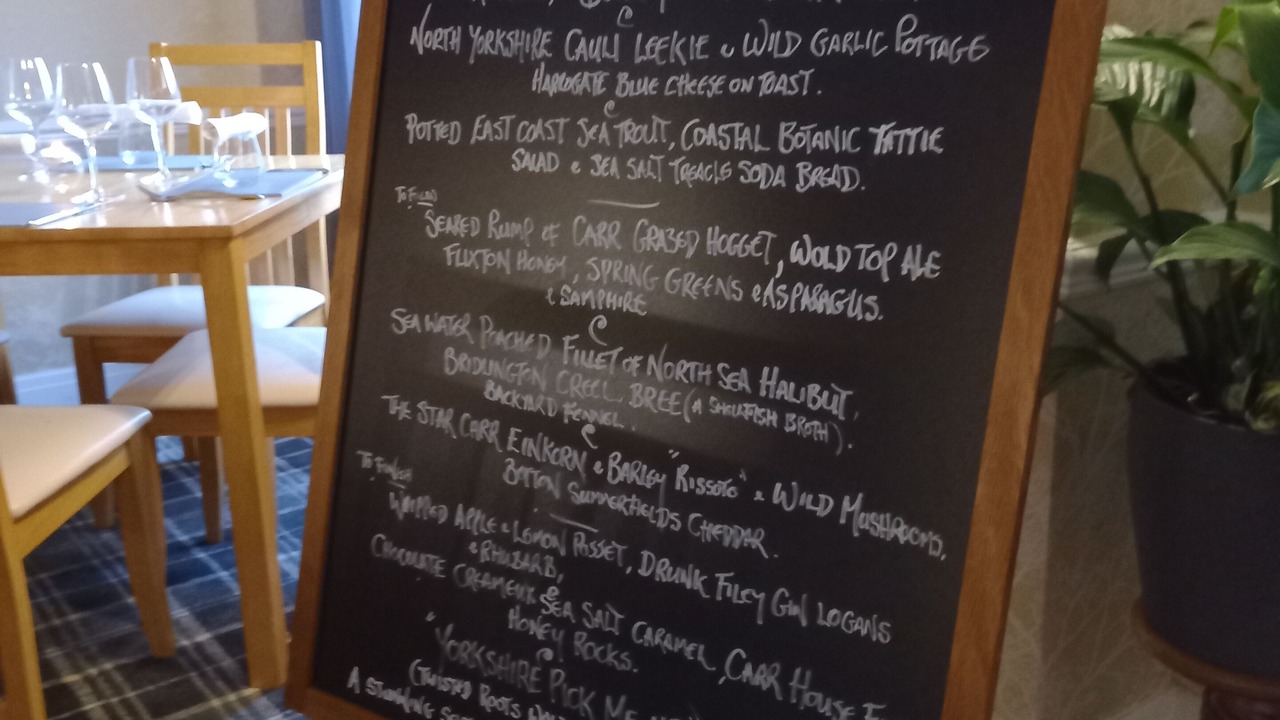 NORTH YORKSHIRE CAULI LEEKIE & WILD GARLIC POTTAGE
HARROGATE BLUE CHEESE ON TOAST.
POTTED EAST COAST SEA TROUT, COASTAL BOTANIC TATTIE
SALAD & SEA SALT TREACLE SODA BREAD.
SEARED RUMP OF CARR GRAZED HOGGET, WOLD TOP ALE
FLIXTON HONEY, SPRING GREENS & ASPARAGUS.
& SAMPHIRE
SEA WATER POACHED FILLET OF NORTH SEA HALIBUT,
BRIDLINGTON CREEL BREE (A SHELLFISH BROTH).
BACKYARD FENNEL.
THE STAR CARR EINKORN & BARLEY "RISSOTO" & WILD MUSHROOMS,
BOTTON SUMMERFIELDS CHEDDAR.
TO FINISH
WHIPPED APPLE & LEMON POSSET, DRUNK FILEY GIN LOGANS
& RHUBARB,
CHOCOLATE CREAMEUX, SEA SALT CARAMEL, CARR HOUSE F
HONEY ROCKS.
"YORKSHIRE PICK ME
(TWISTED ROOTS
A STUNNING